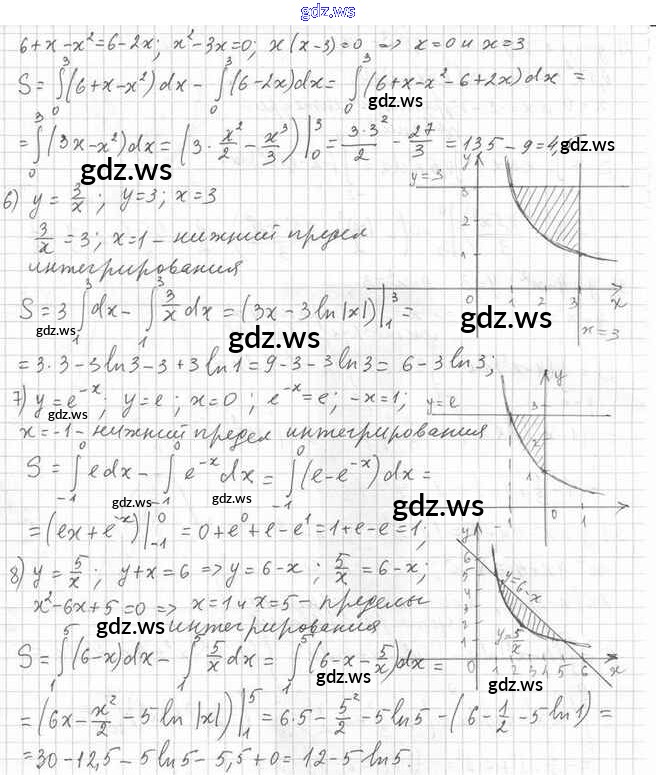 gdz.ws
6+x-x²=6-2x; x²-3x=0; x(x-3)=0 => x=0 и x=3
S=∫₀³(6+x-x²)dx-∫₀³(6-2x)dx=∫₀³(6+x-x²-6+2x)dx=
gdz.ws
=∫₀³(3x-x²)dx=(3·x²/2-x³/3)|₀³=3·3²/2-27/3=13,5-9=4,5
gdz.ws
gdz.ws
6) y=3/x; y=3; x=3
3/x=3; x=1 - нижний предел
интегрирования
S=3∫₁³dx-∫₁³3/x dx=(3x-3ln|x|)|₁³=
gdz.ws
gdz.ws
=3·3-3ln3-3+3ln1=9-3-3ln3=6-3ln3;
y=3
y
3
2
1
1 2 3 x
gdz.ws
x=3
7) y=e⁻ˣ; y=e; x=0; e⁻ˣ=e; -x=1;
gdz.ws
x=-1 - нижний предел интегрирования
S=∫₋₁⁰edx-∫₋₁⁰e⁻ˣdx=∫₋₁⁰(e-e⁻ˣ)dx=
gdz.ws
gdz.ws
gdz.ws
=(ex+e⁻ˣ)|₋₁⁰=0+e⁰+e-e¹=1+e-e=1;
y=e
y
3
1
-1 0 1
8) y=5/x; y+x=6 => y=6-x; 5/x=6-x;
x²-6x+5=0 => x=1 и x=5 - пределы
gdz.ws
интегрирования
S=∫₁⁵(6-x)dx-∫₁⁵5/x dx=∫₁⁵(6-x-5/x)dx=
gdz.ws
=(6x-x²/2-5ln|x|)|₁⁵=6·5-5²/2-5ln5-(6-1/2-5ln1)=
=30-12,5-5ln5-5,5+0=12-5ln5.
y
6
5
4
3
2
1
y=6-x
y=5/x
1 2 3 4 5 6 x
gdz.ws